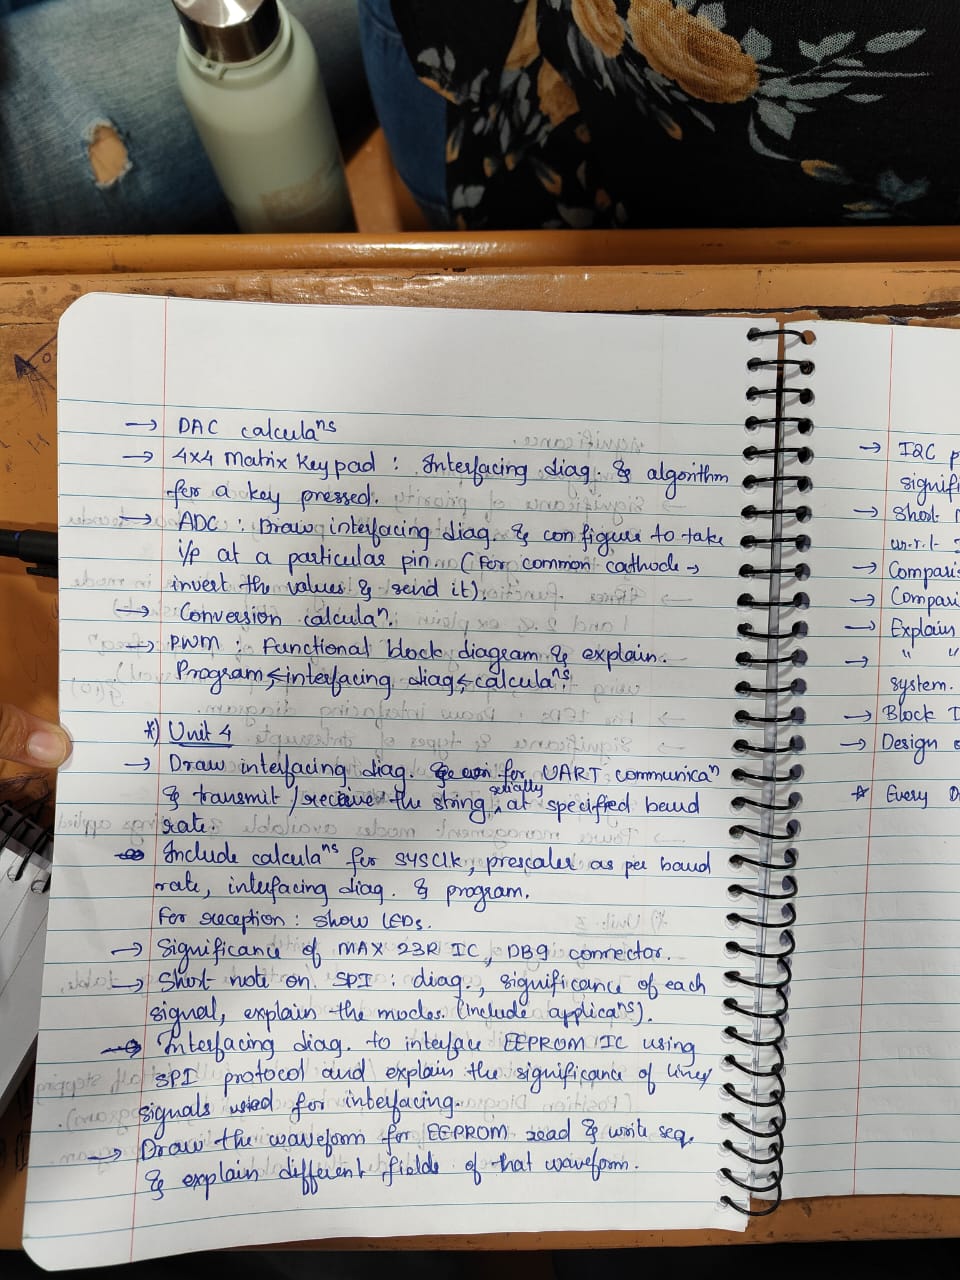 → DAC calculaⁿˢ
→ 4x4 Matrix Key pad : Interfacing diag. & algorithm
for a key pressed.
→ ADC : Draw interfacing diag. & configure to take
i/p at a particular pin (For common cathode →
invert the values & send it).
→ Conversion calculaⁿ.
→ PWM : Functional block diagram & explain.
Program, interfacing diag, calculaⁿˢ.
*) Unit 4
→ Draw interfacing diag. for UART communicaⁿ
& transmit / receive the string serially at specified baud
rate.
→ Include calculaⁿˢ for SYSClk, prescaler as per baud
rate, interfacing diag. & program.
For reception : show LEDs.
→ Significance of MAX 23R IC, DB9 connector.
→ Short note on SPI : diag., significance of each
signal, explain the modes. (include applicaⁿˢ).
→ Interfacing diag. to interface EEPROM IC using
SPI protocol and explain the significance of lines/
signals used for interfacing.
→ Draw the waveform for EEPROM read & write seq.
& explain different fields of that waveform.
→ I2C
signifi
→ Short
w.r.t
→ Comparis
→ Compari
→ Explain
→ " "
system.
→ Block
→ Design
* Every